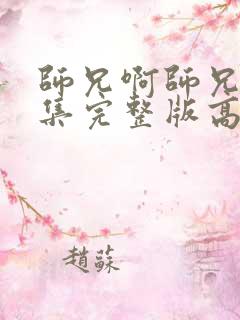 師兄啊師兄
集完整版高
趙蘇